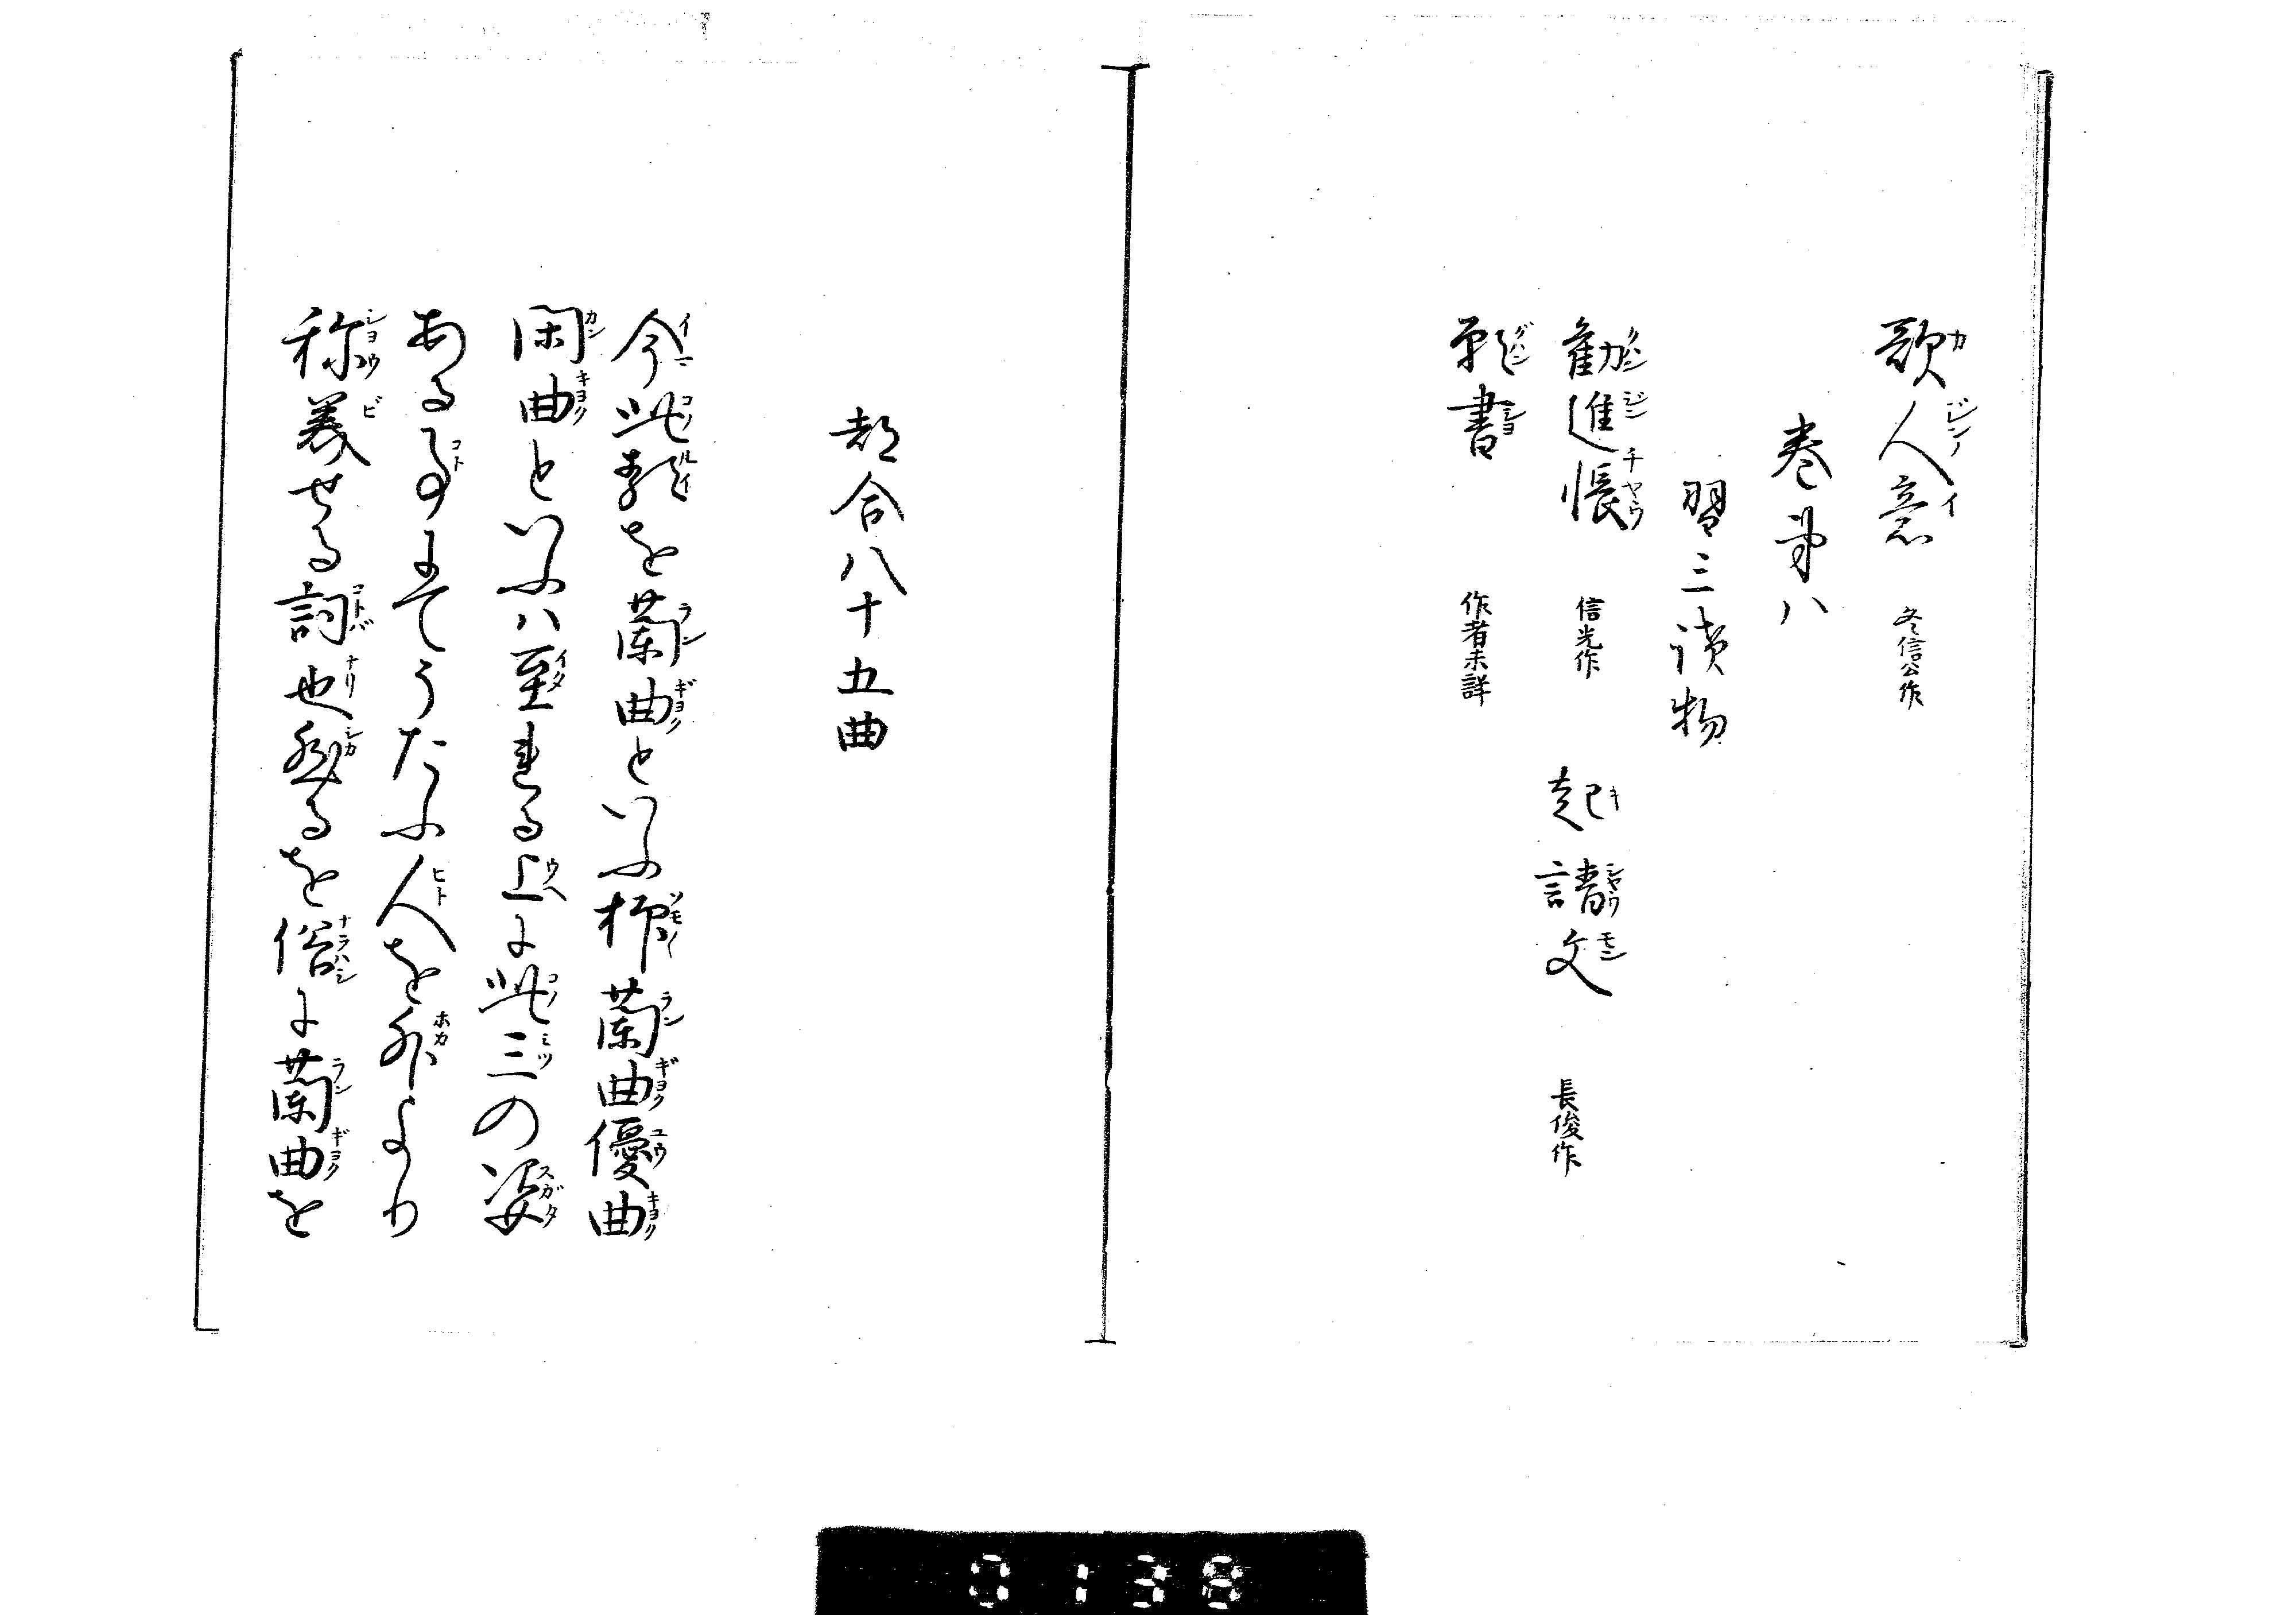 歌人意 冬信公作
巻第八
習三読物
勧進帳 信光作 起請文 長俊作
願書 作者未詳
都合八十五曲
今此類を蘭曲といふ抑蘭曲優曲
閑曲といふハ至れる上に此三の姿
ある事にてうたふ人を外より
称美せる詞也然るを俗に蘭曲を
0138